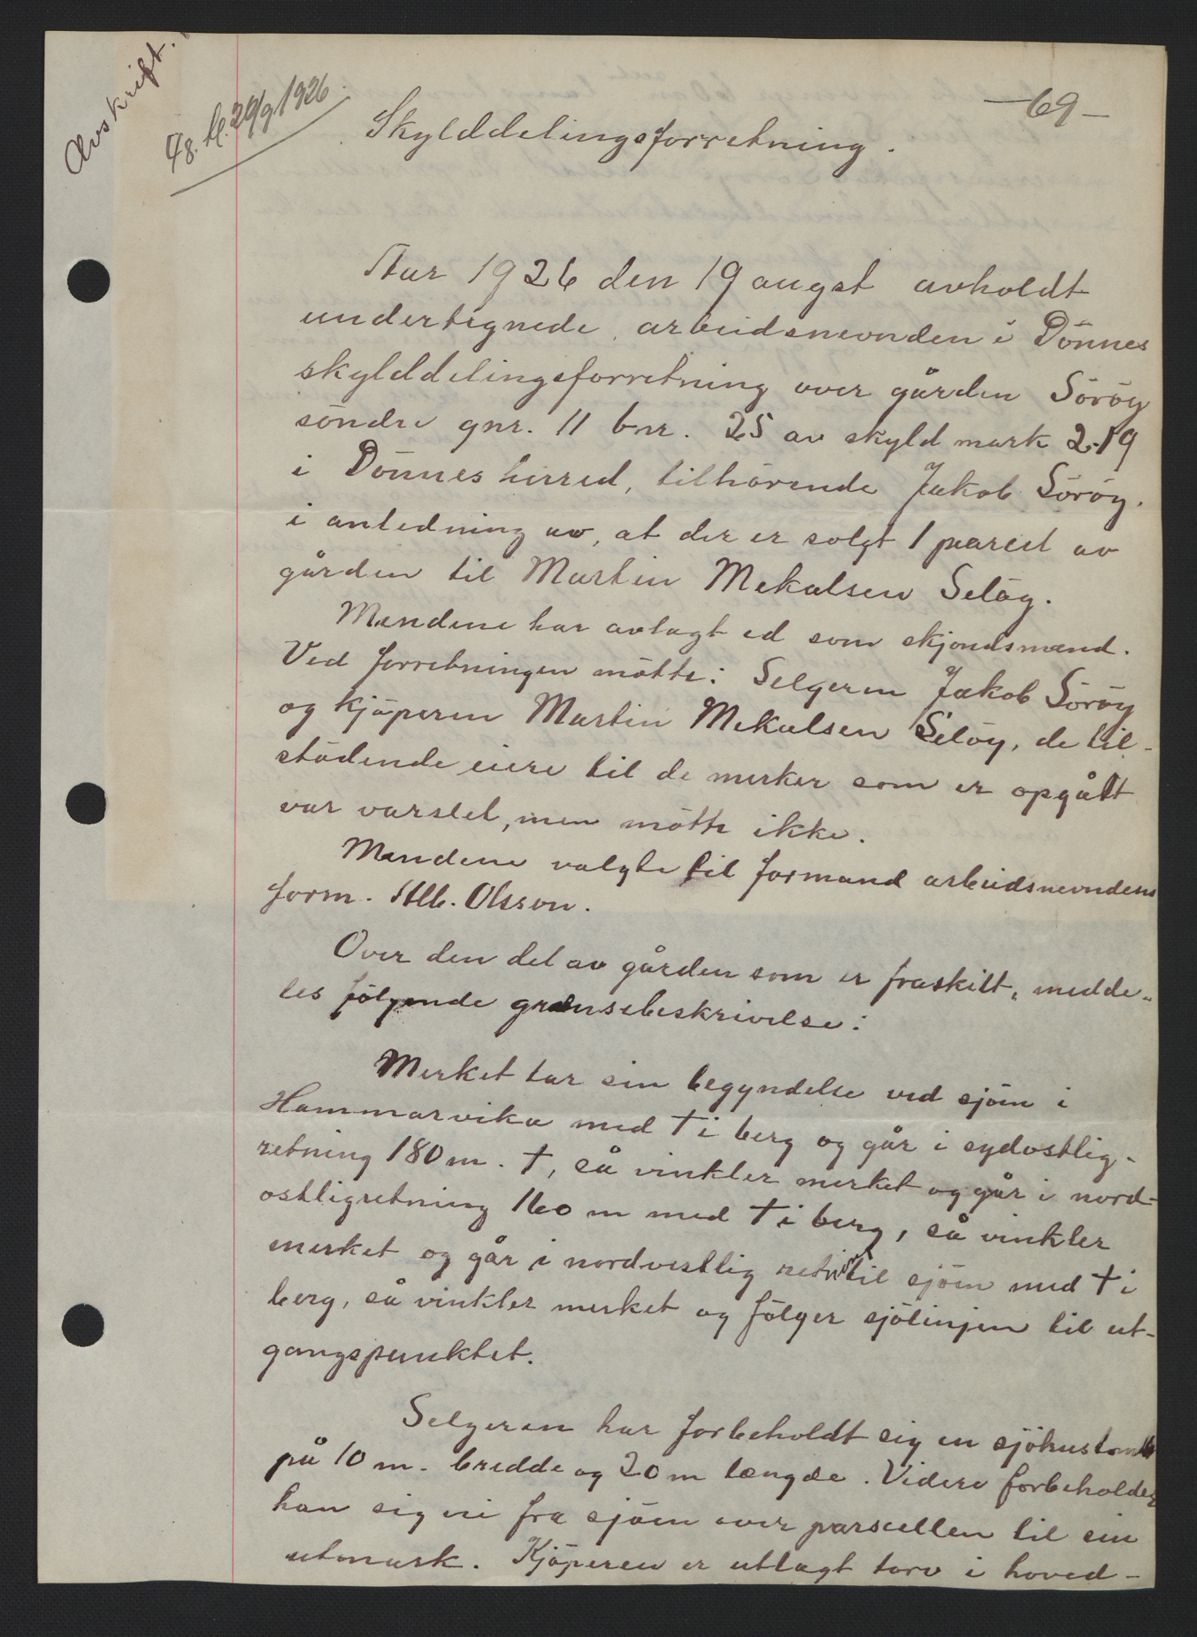 Avskrift.
29/9 1926
—69—
Skylddelingsforretning.
Aar 1926 den 19 augst avholdt
undertegnede arbeidsnevnden i Dönnes
skylddelingsforretning over gården Söröy
söndre gnr. 11 bnr. 25 av skyld mark 2.19
i Dönnes herred, tilhörende Jakob Söröy.
i anledning av, at der er solgt 1 parcel av
gården til Martin Mekalsen Selöy.
Mendene har avlagt ed som skjöndsmænd.
Ved forretningen mötte: Selgeren Jakob Söröy
og kjöperen Martin Mekalsen Selöy, de til-
stödende eiere til de merker som er opgått
var varslet, men mötte ikke.
Mendene valgte til formand arbeidsnevndens
form. Alb. Olsson.
Over den del av gården som er fraskilt, medde-
les fölgende grænsebeskrivelse:
Merket tar sin begyndelse ved sjöen i
Hammarvika med † i berg og går i sydostlig-
retning 180 m. †, så vinkler merket og går i nord-
ostligretning 160 m med † i berg, så vinkler
merket og går i nordvestlig retning til sjöen med † i
berg, så vinkler merket og fölger sjölinjen til ut-
gangspunktet.
Selgeren har forbeholdt sig en sjöhustomt
på 10 m. bredde og 20 m længde. Videre forbeholder
han sig vei fra sjöen over parsellen til sin
utmark. Kjöperen er utlagt torv i hoved-